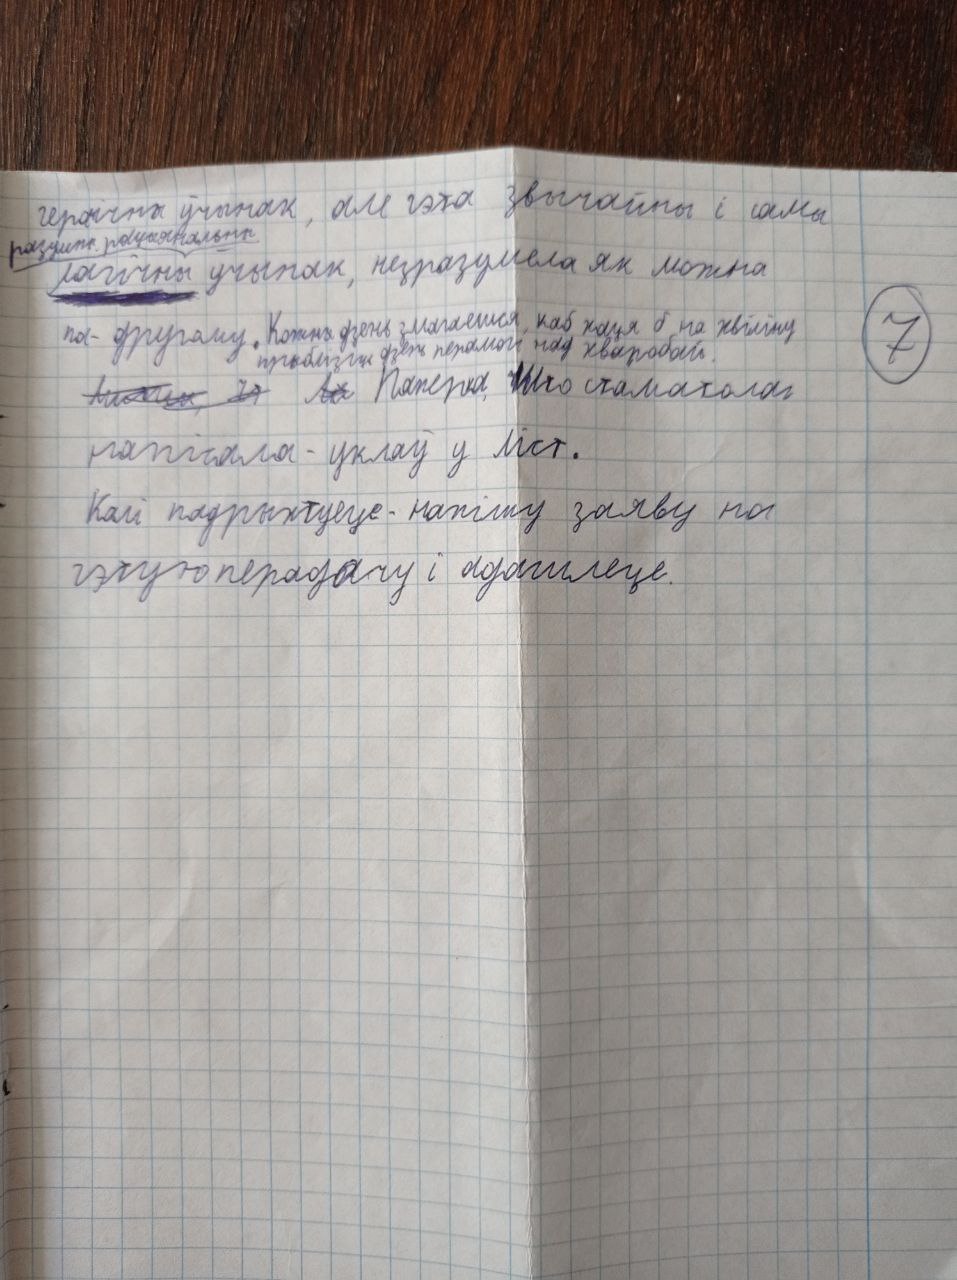 герачны ўчынак, але гэта звычайны і самы
разумн. рацыянальн.
лагічны ўчынак, незразумела як можна
па-другому. Кожны дзень змагаешся, каб хаця б на хвіліну
прыблізіць дзень перамогі над хваробай.
Паперка, што стаматолаг
напісала - уклаў у ліст.
Калі падрыхтуеце - напішу заяву на
гэтую перадачу і адашлеце.
7